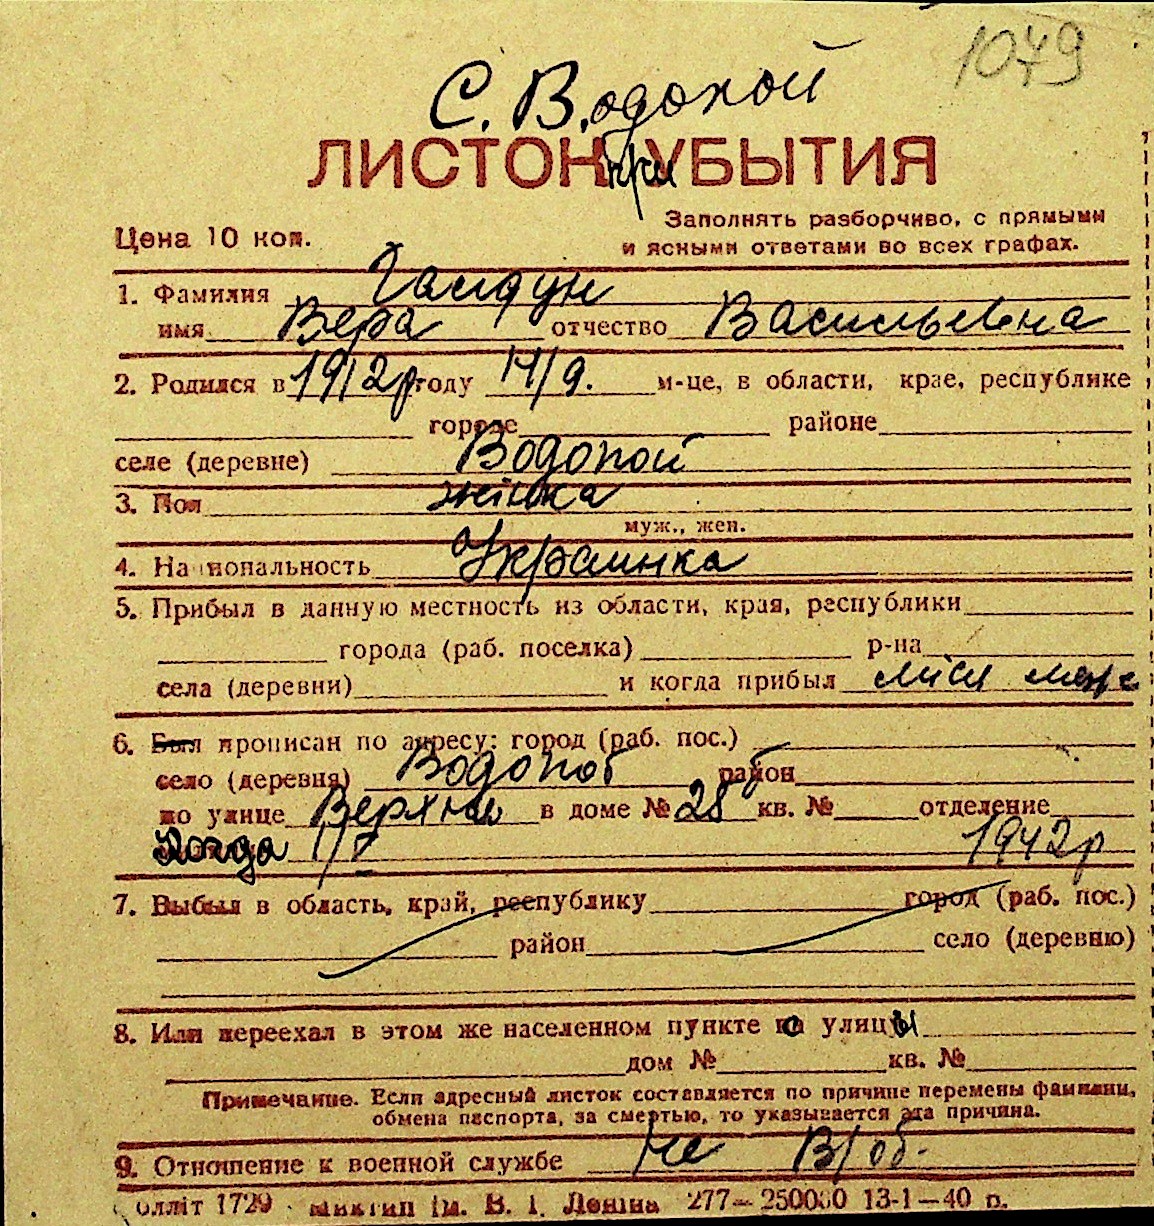 1049
С. Водопой
ЛИСТОК при УБЫТИЯ
Цена 10 коп.
Заполнять разборчиво, с прямыми
и ясными ответами во всех графах.
1. Фамилия Гайдун
имя Вера отчество Васильевна
2. Родился в 1912р году 14/9. м-це, в области, крае, республике
городе районе
селе (деревне) Водопой
3. Пол жінка
муж., жен.
4. Национальность Украинка
5. Прибыл в данную местность из области, края, республики
города (раб. поселка) р-на
села (деревни) и когда прибыл
6. Был прописан по адресу: город (раб. пос.)
село (деревня) Водопой район
по улице Верхня в доме № 28 кв. № отделение
когда 1/V 1942р
7. Выбыл в область, край, республику город (раб. пос.)
район село (деревню)
8. Или переехал в этом же населенном пункте с улицы
дом № кв. №
Примечание. Если адресный листок составляется по причине перемены фамилии,
обмена паспорта, за смертью, то указывается эта причина.
9. Отношение к военной службе не в/об.
оллiт 1729 iм. В. І. Ленiна 277—250000 13-1—40 р.